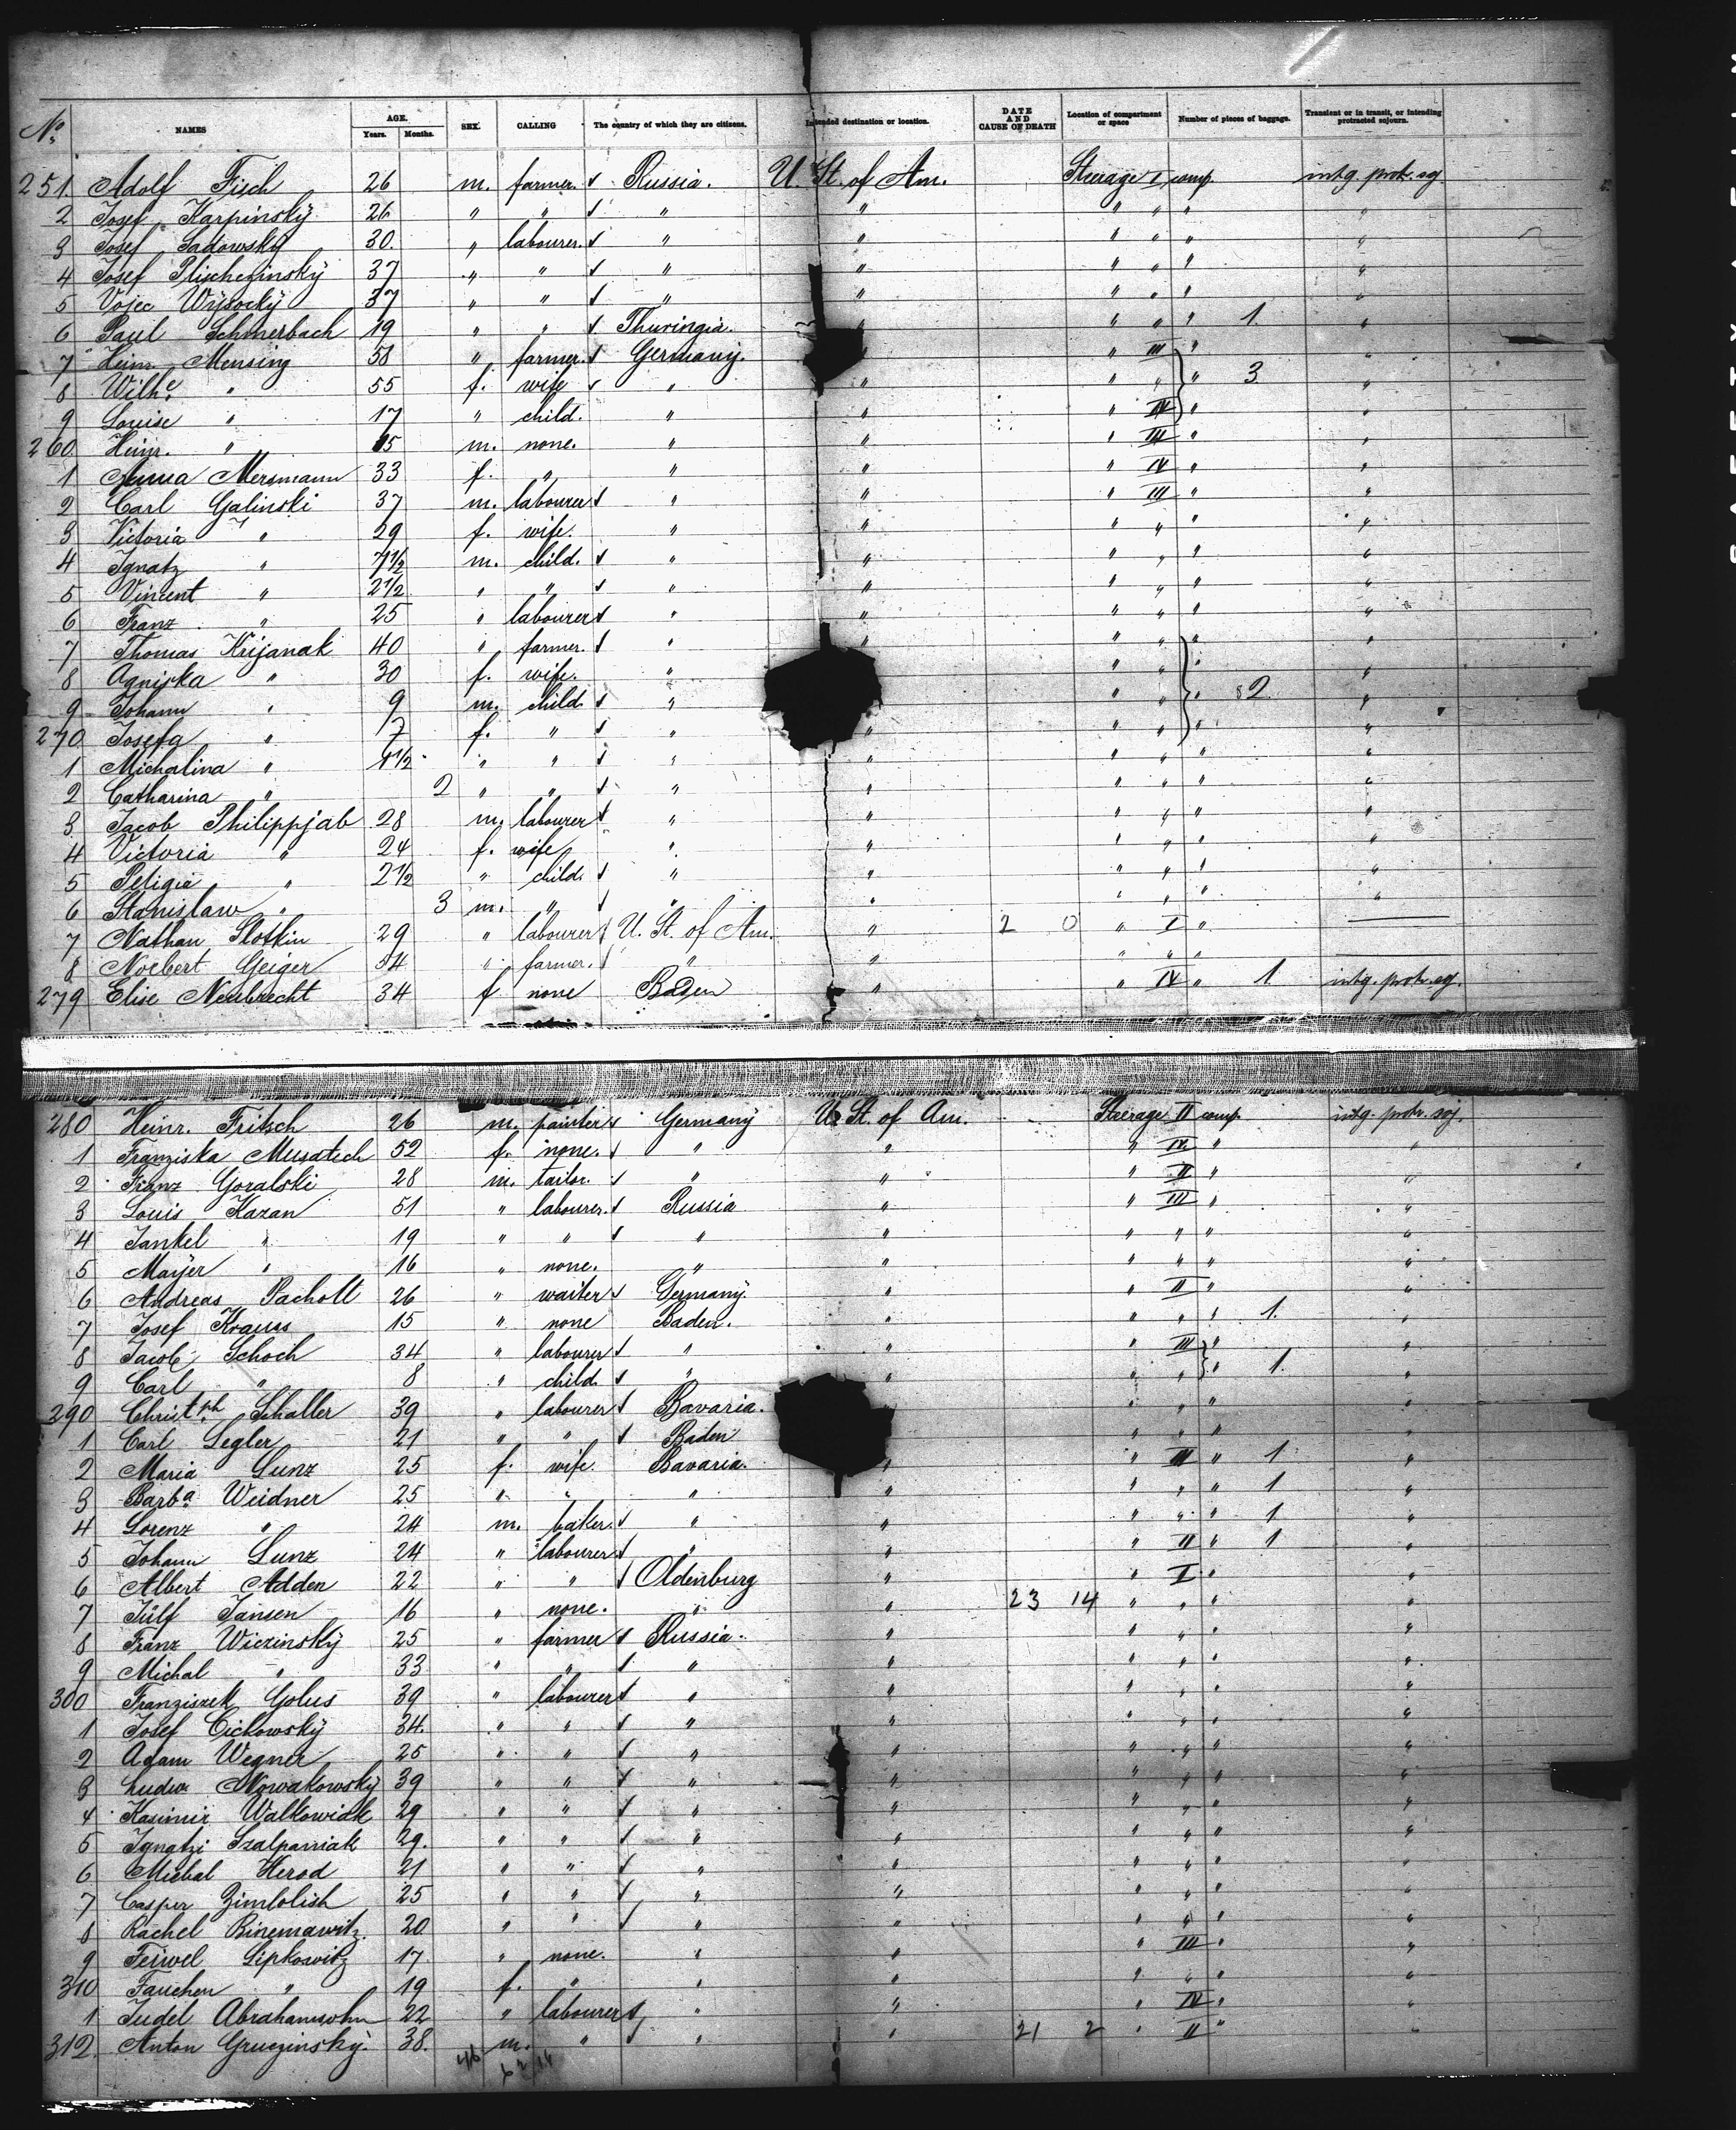 No. NAMES AGE. Years. Months. SEX. CALLING The country of which they are citizens. Intended destination or location. DATE AND CAUSE OF DEATH Location of compartment or space Number of pieces of baggage. Transient or in transit, or intending protracted sojourn.
251. Adolf Fisch 26 m. farmer. Russia. U. St. of Am. Steerage I comp. intg. protr. soj.
2 Josef Karpinsky 26 " " " " " " " "
3 Josef Sadowsky 30. " labourer. " " " " " "
4 Josef Plischczinsky 37 " " " " " " " "
5 Vojec Wysocky 37 " " " " " " " "
6 Paul Schmerbach 19 " " Thuringia. " " " " 1. "
7 Heinr. Mensing 58 " farmer. Germany. " " III " "
8 Wilhe. " 55 f. wife " " " " " 3 "
9 Louise " 17 " child. " " " IV " "
260 Heinr. " 15 m. none. " " " III " "
1 Anna Mersmann 33 f. " " " " IV " "
2 Carl Galinski 37 m. labourer " " " III " "
3 Victoria " 29 f. wife. " " " " " "
4 Ignatz " 7 1/2 m. child. " " " " " "
5 Vincent " 2 1/2 " " " " " " " "
6 Franz " 25 " labourer " " " " " "
7 Thomas Krijanak 40 " farmer. " " " " " "
8 Agniska " 30 f. wife. " " " " " "
9 Johann " 9 m. child. " " " " " 2 "
270 Josefa " 7 f. " " " " " " "
1 Michalina " 4 1/2 " " " " " " " "
2 Catharina " 2 " " " " " " " "
3 Jacob Philippjab 28 m. labourer " " " " " "
4 Victoria " 24 f. wife " " " " " "
5 Peligia " 2 1/2 " child. " " " " " "
6 Stanislaw " 3 m. " " " " " " "
7 Nathan Slotkin 29 " labourer U. St. of Am. " 2 0 " I "
8 Norbert Geiger 34 " farmer. " " " " "
279 Elise Neubrecht 34 f none Baden " " IV " 1 intg. protr. soj.
280 Heinr. Fritsch 26 m. painter Germany U. St. of Am. Steerage II comp. intg. protr. soj.
1 Franziska Musatech 52 f. none. " " " IV " "
2 Franz Goralski 28 m. tailor. " " " II " "
3 Louis Kazan 51 " labourer. Russia " " III " "
4 Jankel " 19 " " " " " " " "
5 Mayer " 16 " none. " " " " " "
6 Andreas Pacholl 26 " waiter Germany. " " II " "
7 Josef Krauss 15 " none Baden. " " " " 1. "
8 Jacob Schoch 34 " labourer " " " III " "
9 Carl " 8 " child. " " " " " 1. "
290 Christph. Schaller 39 " labourer Bavaria. " " " " "
1 Carl Segler 21 " " Baden " " " "
2 Maria Lunz 25 f. wife. Bavaria. " " III " 1 "
3 Barba. Weidner 25 " " " " " " " 1 "
4 Lorenz " 24 m. baker. " " " " " 1 "
5 Johann Lunz 24 " labourer " " " II " 1 "
6 Albert Adden 22 " " Oldenburg " " I " "
7 Jülf Jansen 16 " none. " " 23 14 " " " "
8 Franz Wiczinsky 25 " farmer Russia. " " " " "
9 Michal " 33 " " " " " " " "
300 Franziszek Golus 39 " labourer " " " " " "
1 Josef Cickowsky 34. " " " " " " " "
2 Adam Wegner 25 " " " " " " " "
3 Ludw. Nowakowsky 39 " " " " " " " "
4 Kasimir Walkowiak 29 " " " " " " " "
5 Ignatzi Szalpaniak 29. " " " " " " " "
6 Michal Herod 21 " " " " " " " "
7 Casper Zimbolish 25 " " " " " " " "
8 Rachel Binemawitz. 20 " " " " " " " "
9 Feiwel Lipkowitz 17. " none. " " " III " "
310 Fauchen " 19 f. " " " " " " "
1 Judel Abrahamsohn 22 " labourer " " " IV " "
312. Anton Gruczinsky. 38. m. " " " 21 2 " II " "